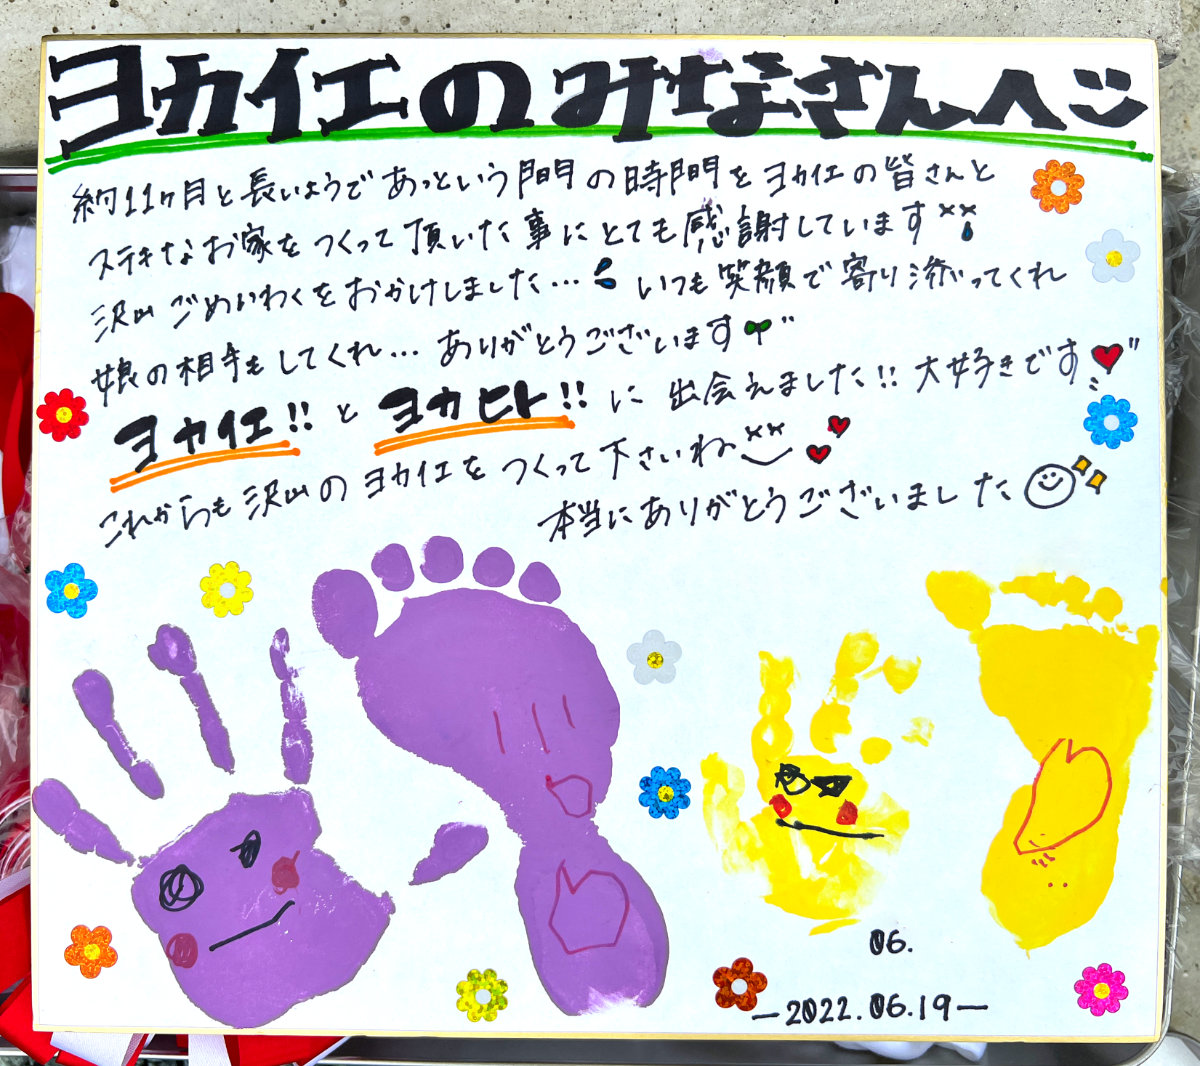 ヨカイエのみなさんへ
約11ヶ月と長いようであっという間の時間をヨカイエの皆さんと
ステキなお家をつくって頂いた事にとても感謝しています
沢山ごめいわくをおかけしました...いつも笑顔で寄り添ってくれ
娘の相手もしてくれ...ありがとうございます
ヨカイエ!!とヨカヒト!!に出会えました!!大好きです
これからも沢山のヨカイエをつくって下さいね
本当にありがとうございました
06.
-2022.06.19-